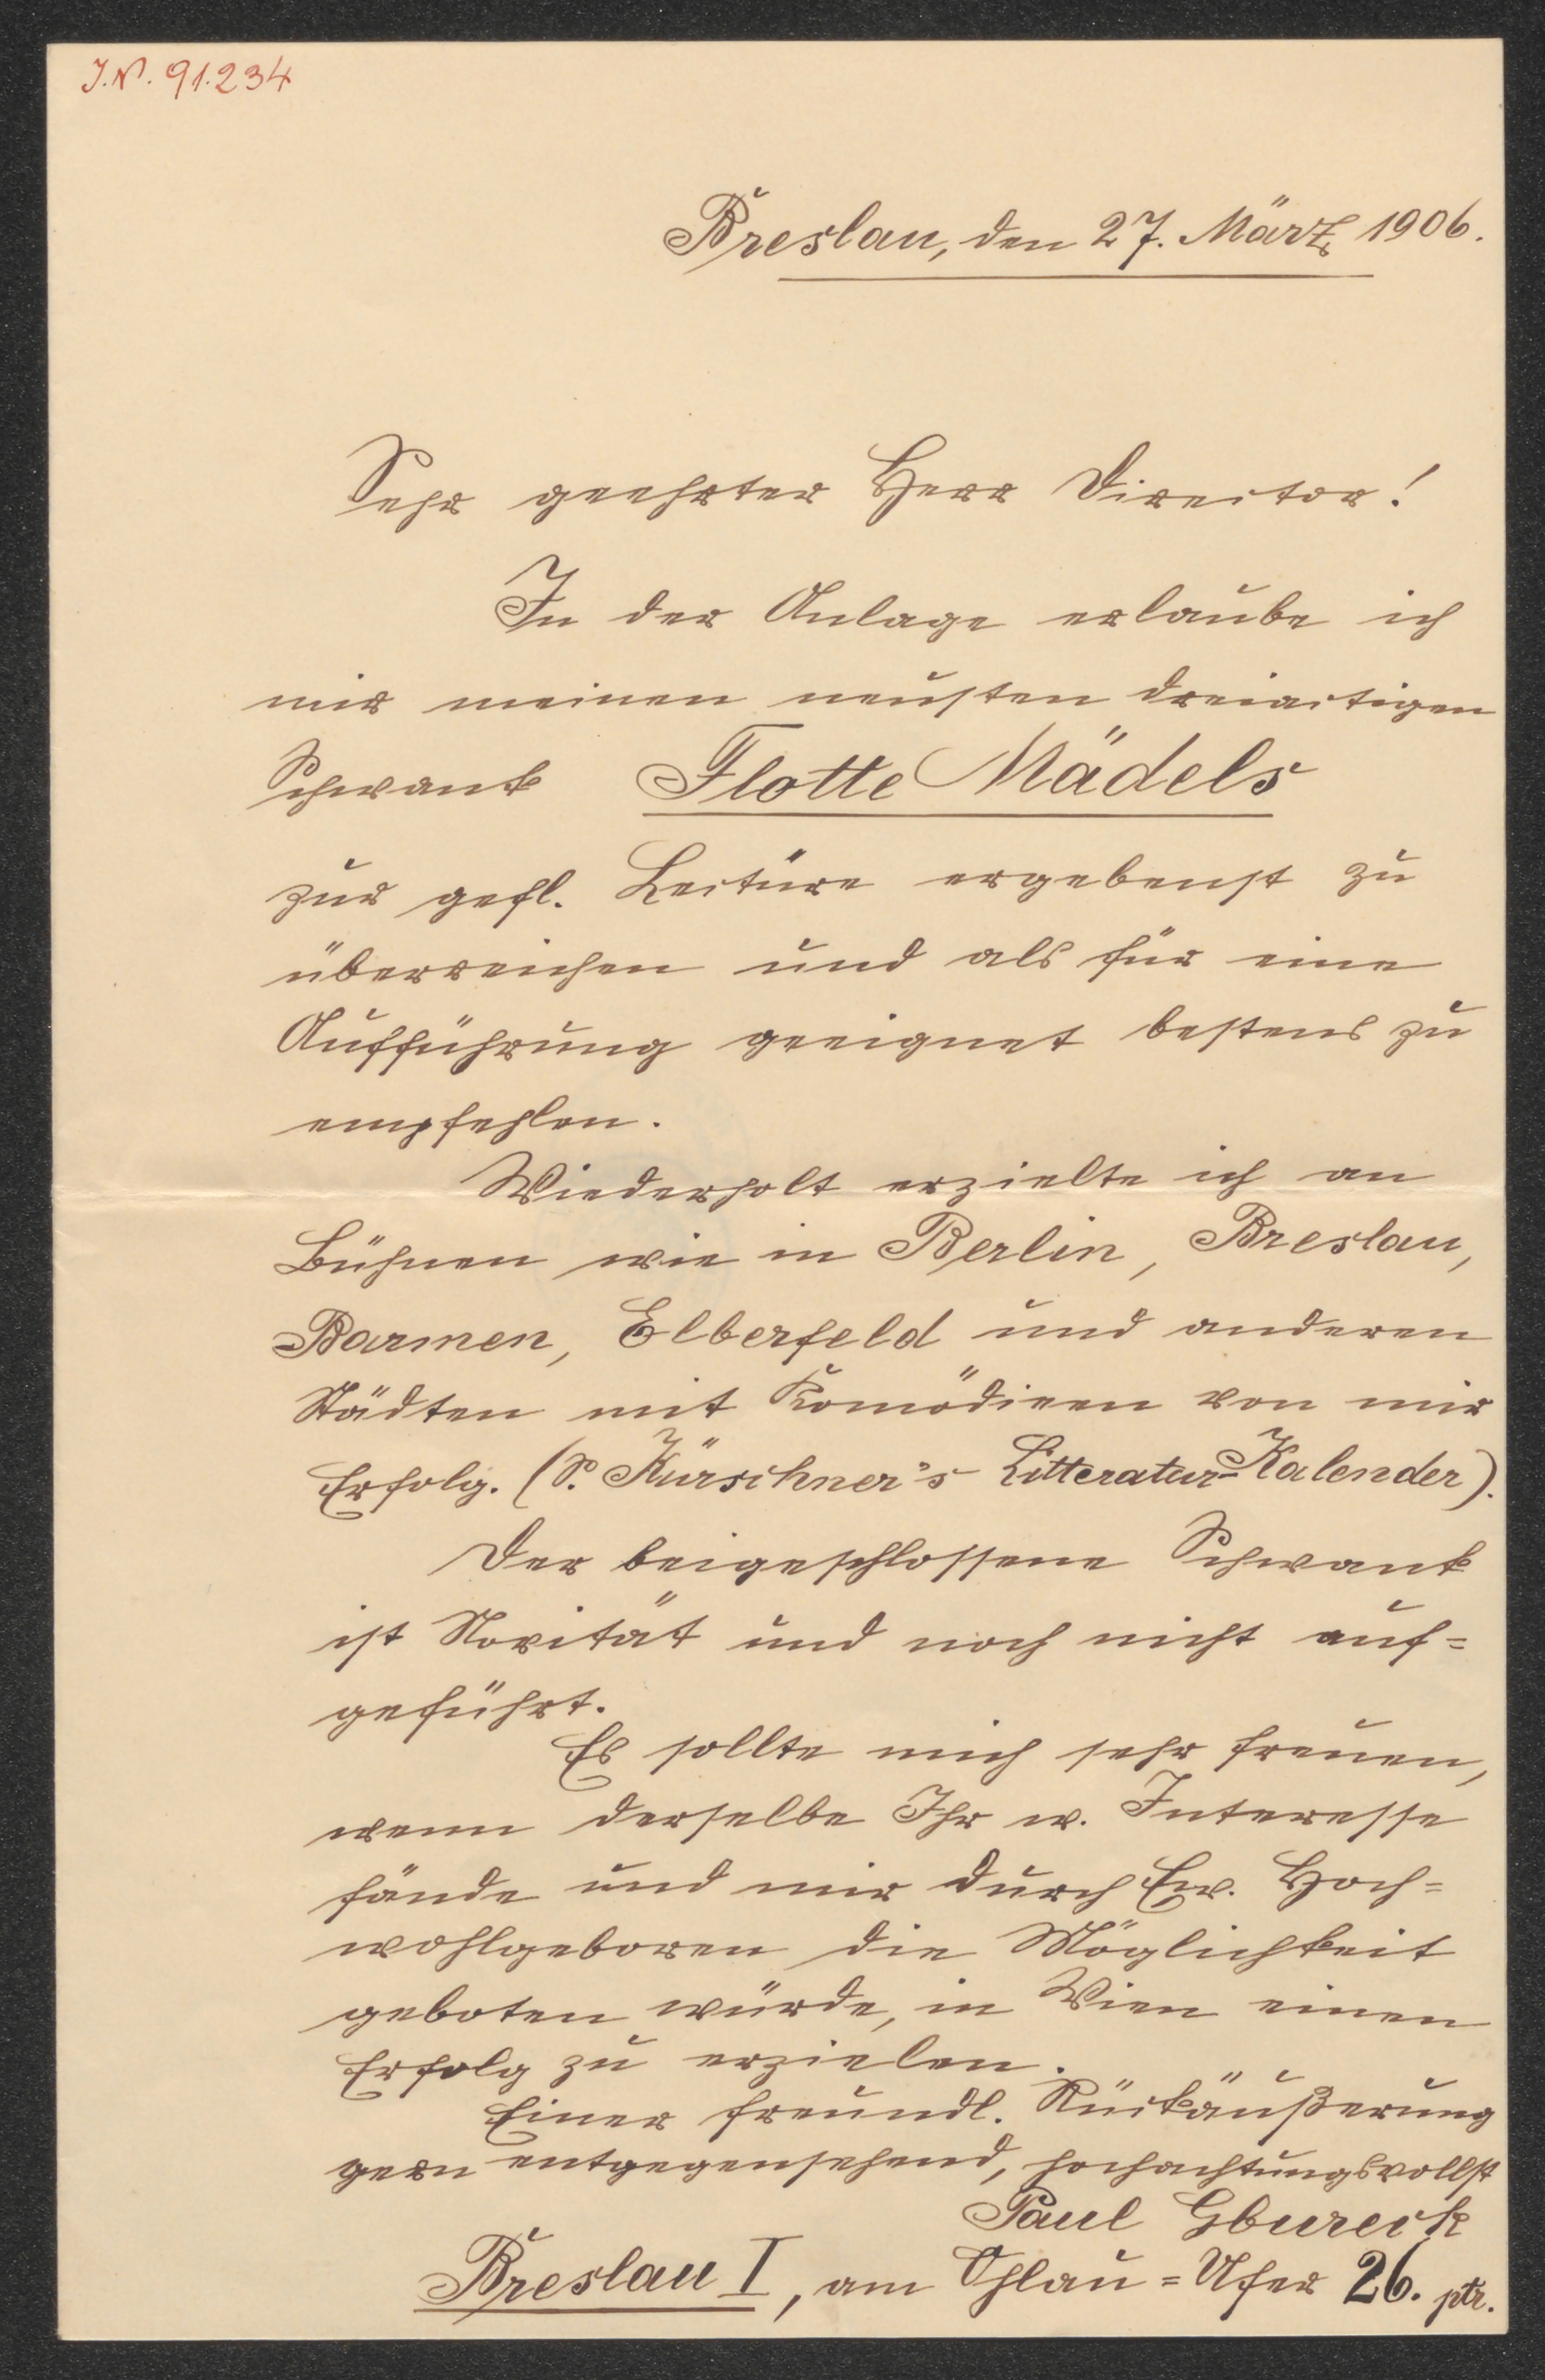 J.N. 91.234
Breslau, den 27. März 1906.
Sehr geehrter Herr Director!
In der Anlage erlaube ich
mir meinen neusten dreiactigen
Schwank Flotte Mädels
zur gefl. Lectüre ergebenst zu
überreichen und als für eine
Aufführung geeignet bestens zu
empfehlen.
Wiederholt erzielte ich an
Bühnen wie in Berlin, Breslau,
Barmen, Elberfeld und anderen
Städten mit Komödieen von mir
Erfolg. (S. Kürschner's Litteratur-Kalender).
Der beigeschlossene Schwank
ist Novität und noch nicht auf=
geführt.
Es sollte mich sehr freuen,
wenn derselbe Ihr w. Interesse
fände und mir durch Ew. Hoch=
wohlgeboren die Möglichkeit
geboten würde, in Wien einen
Erfolg zu erzielen.
Einer freundl. Rückäußerung
gern entgegensehend, hochachtungsvollst
Paul Gbureck
Breslau I, am Ohlau=Ufer 26. ptr.